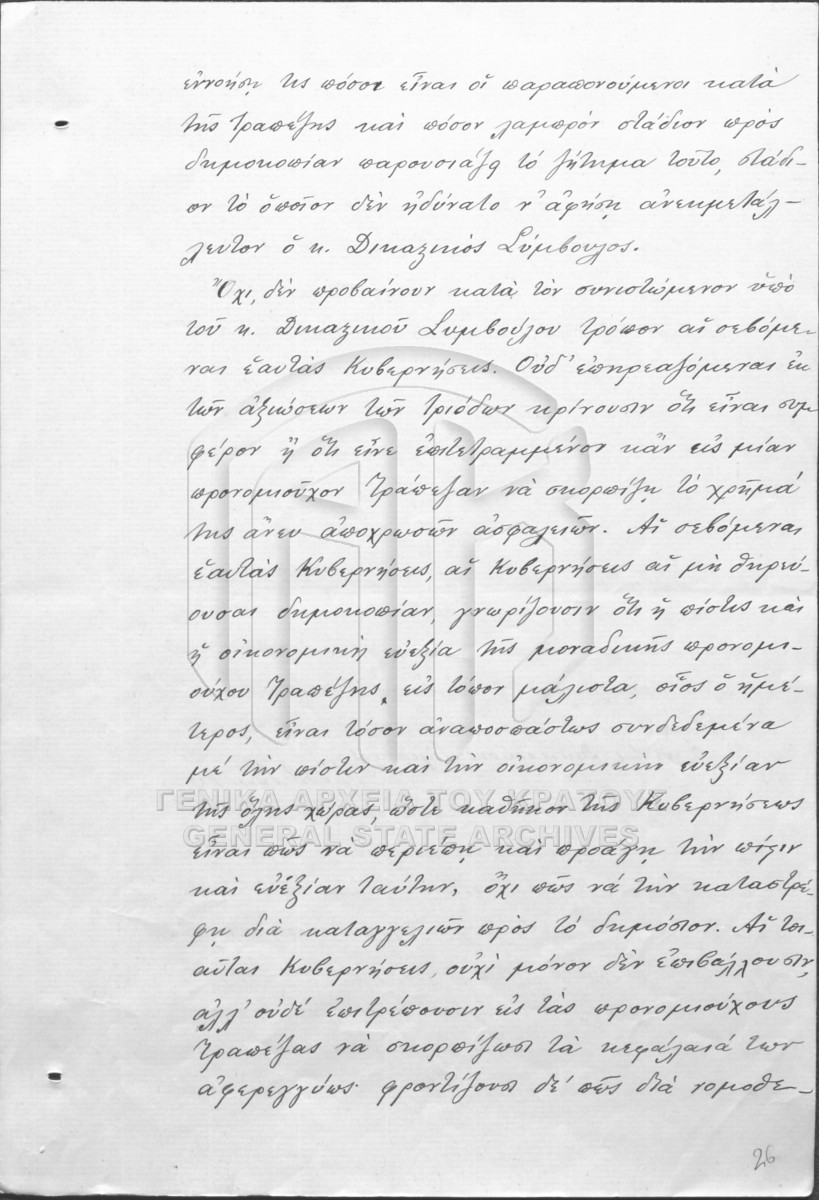 ἐννοήσῃ τις πόσοι εἶναι οἱ παραπονούμενοι κατὰ
τῆς Τραπέζης καὶ πόσον λαμπρὸν στάδιον πρὸς
δημοκοπίαν παρουσιάζῃ τὸ ζήτημα τοῦτο, στάδι-
ον τὸ ὁποῖον δὲν ἠδύνατο ν' ἀφήσῃ ἀνεκμετάλ-
λευτον ὁ κ. Δικαστικὸς Σύμβουλος.
Ὄχι, δὲν προβαίνουν κατὰ τὸν συνιστώμενον ὑπὸ
τοῦ κ. Δικαστικοῦ Συμβούλου τρόπον αἱ σεβόμε-
ναι ἑαυτὰς Κυβερνήσεις. Οὐδ' ἐπηρεαζόμεναι ἐκ
τῶν ἀξιώσεων τῶν τριόδων κρίνουσιν ὅτι εἶναι συμ
φέρον ἢ ὅτι εἶνε ἐπιτετραμμένον κἂν εἰς μίαν
προνομιοῦχον Τράπεζαν νὰ σκορπίζῃ τὸ χρῆμά
της ἄνευ ἀποχρωσῶν ἀσφαλειῶν. Αἱ σεβόμεναι
ἑαυτὰς Κυβερνήσεις, αἱ Κυβερνήσεις αἱ μὴ θηρεύ-
ουσαι δημοκοπίαν, γνωρίζουσιν ὅτι ἡ πίστις καὶ
ἡ οἰκονομικὴ εὐεξία τῆς μοναδικῆς προνομι-
ούχου Τραπέζης, εἰς τόπον μάλιστα, οἷος ὁ ἡμέ-
τερος, εἶναι τόσον ἀναποσπάστως συνδεδεμένα
μὲ τὴν πίστιν καὶ τὴν οἰκονομικὴν εὐεξίαν
τῆς ὅλης χώρας, ὥστε καθῆκον τῆς Κυβερνήσεως
εἶναι πῶς νὰ περιέπῃ καὶ προάγῃ τὴν πίστιν
καὶ εὐεξίαν ταύτην, ὄχι πῶς νὰ τὴν καταστρέ-
φῃ διὰ καταγγελιῶν πρὸς τὸ δημόσιον. Αἱ τοι-
αῦται Κυβερνήσεις, οὐχὶ μόνον δὲν ἐπιβάλλουσιν,
ἀλλ' οὐδὲ ἐπιτρέπουσιν εἰς τὰς προνομιούχους
Τραπέζας νὰ σκορπίζωσι τὰ κεφάλαιά των
ἀφερεγγύως· φροντίζουσι δὲ πῶς διὰ νομοθε-
ΓΕΝΙΚΑ ΑΡΧΕΙΑ ΤΟΥ ΚΡΑΤΟΥΣ
GENERAL STATE ARCHIVES
26